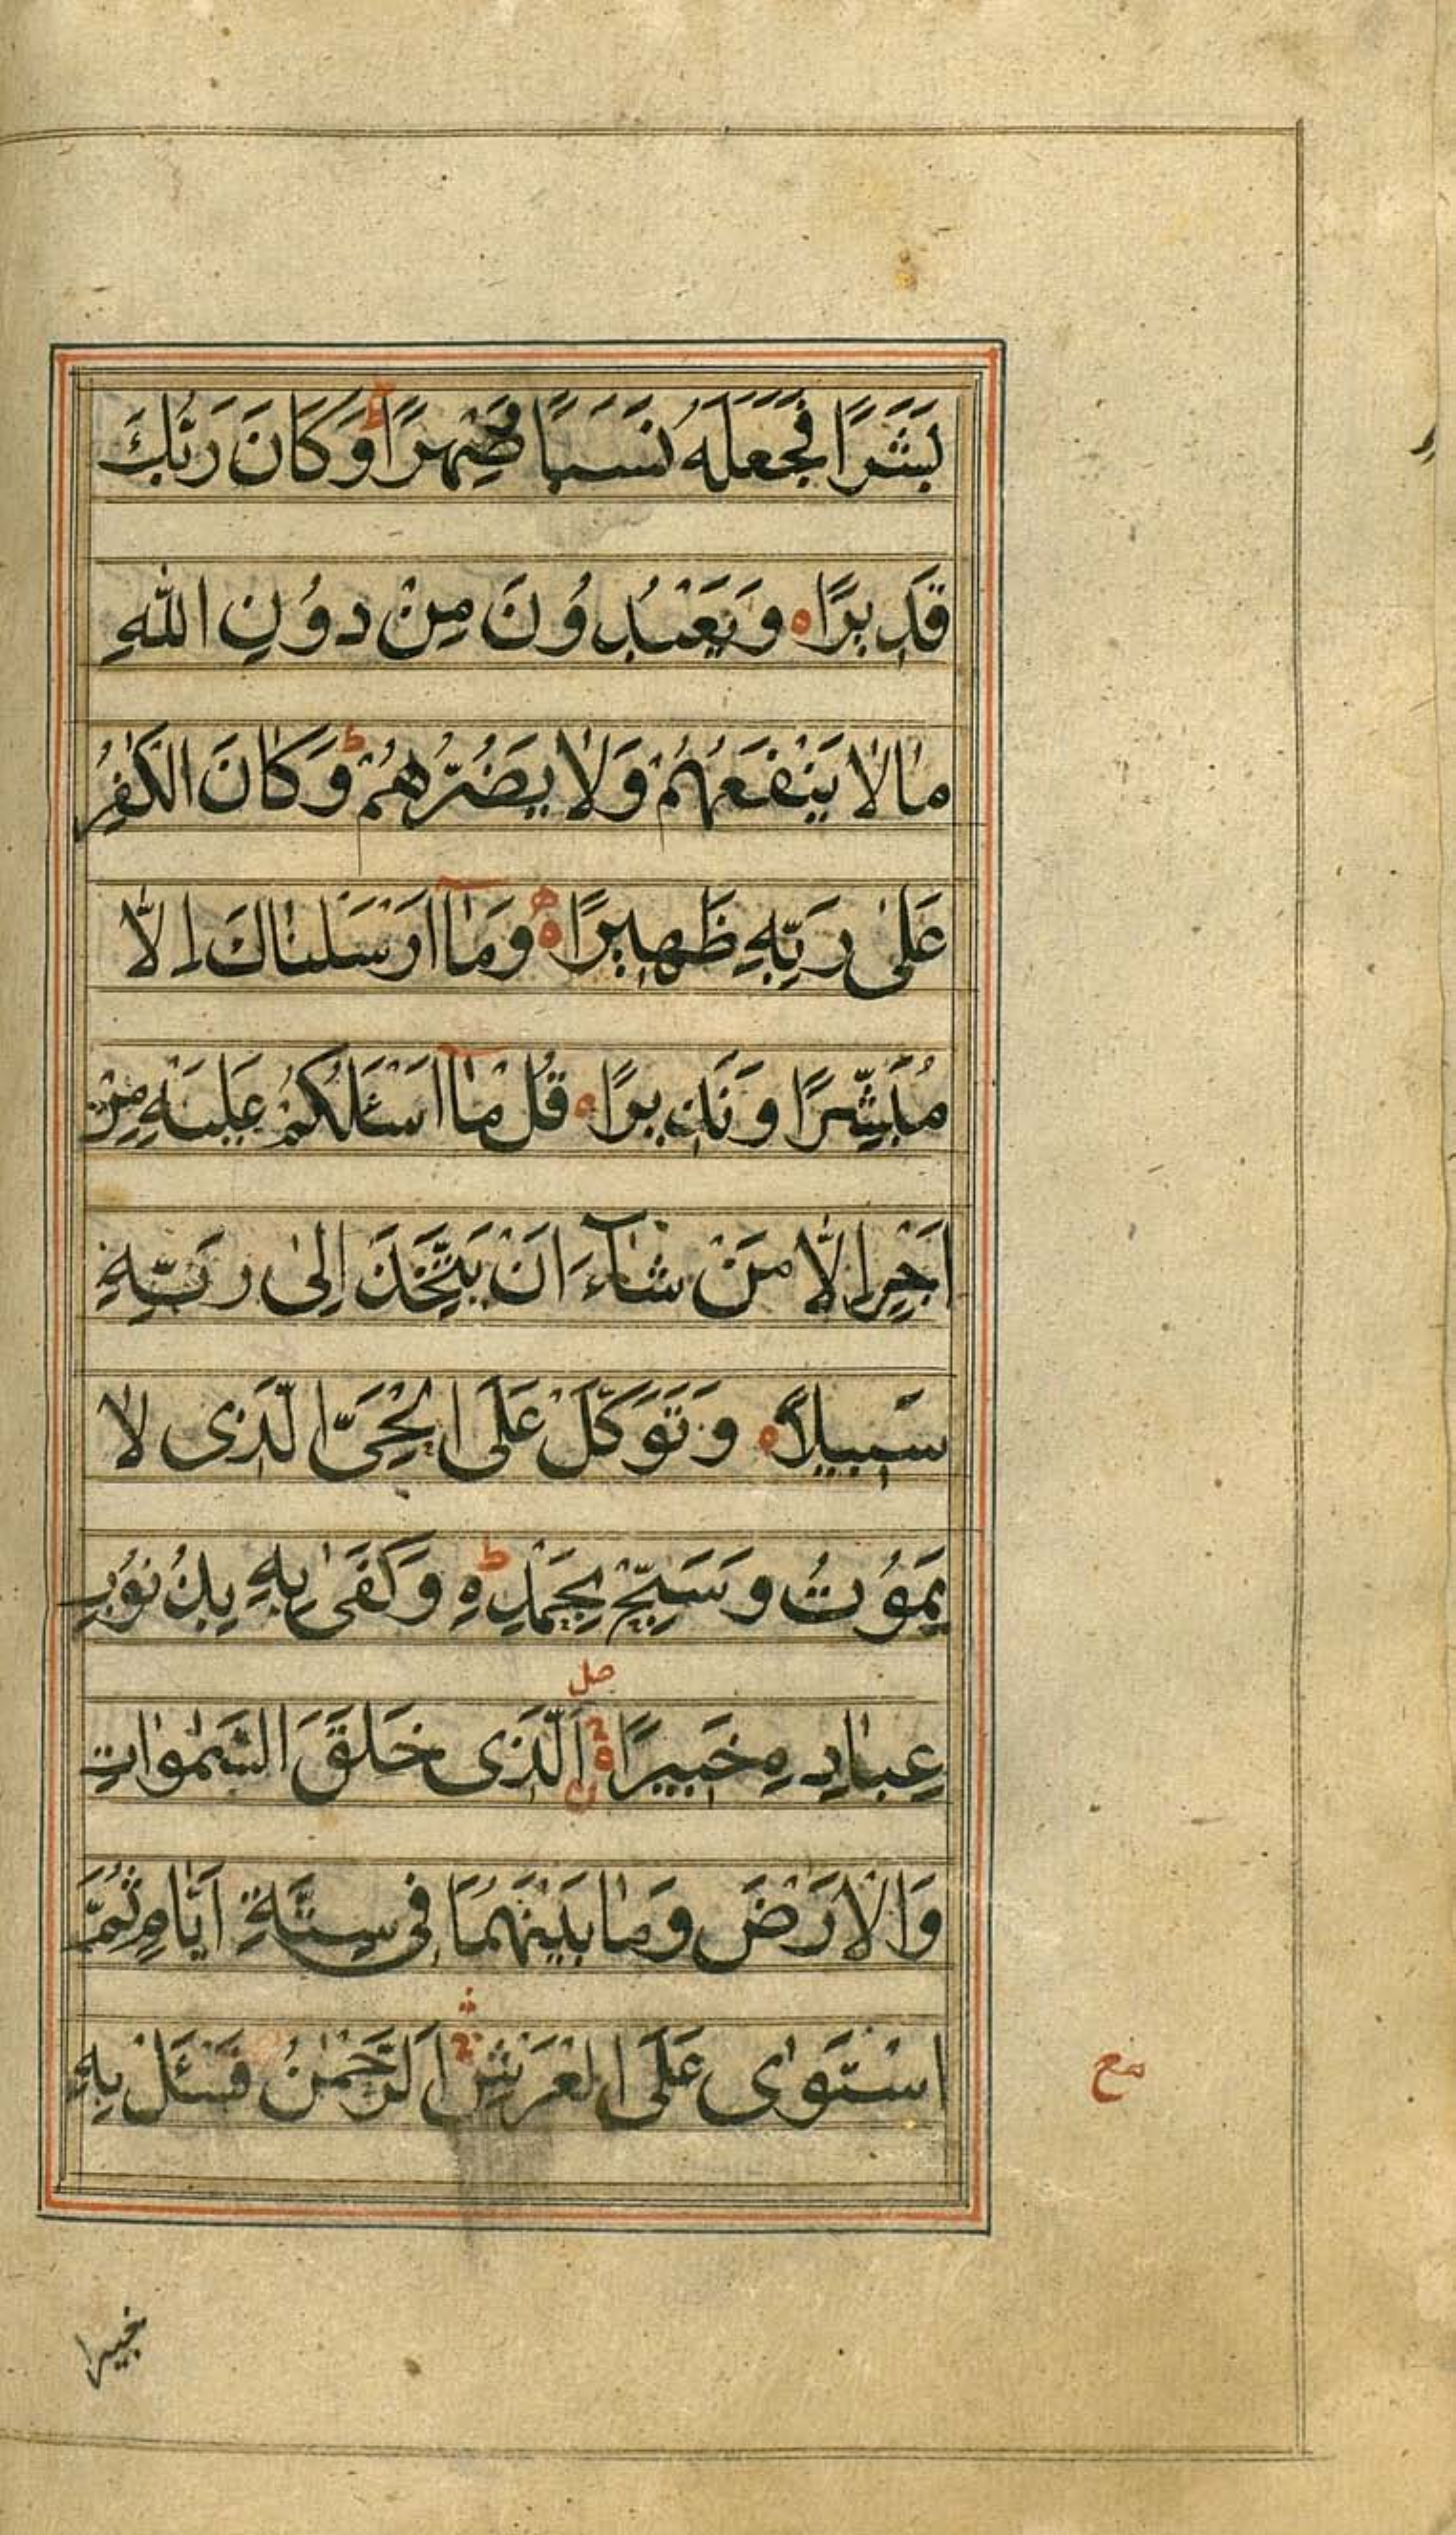 بَشَرًا فَجَعَلَهُ نَسَبًا وَّصِهْرًا ط وَكَانَ رَبُّكَ
قَدِيرًا ه وَيَعْبُدُونَ مِنْ دُونِ اللهِ
مَالَا يَنْفَعُهُمْ وَلَا يَضُرُّهُمْ ط وَكَانَ الْكٰفِرُ
عَلٰى رَبِّهٖ ظَهِيرًا ه وَمَآ اَرْسَلْنَاكَ اِلَّا
مُبَشِّرًا وَنَذِيرًا ه قُلْ مَآ اَسْئَلُكُمْ عَلَيْهِ مِنْ
اَجْرٍ اِلَّا مَنْ شَآءَ اَنْ يَتَّخِذَ اِلٰى رَبِّهٖ
سَبِيلًا ه وَتَوَكَّلْ عَلَى الْحَيِّ الَّذِى لَا
يَمُوْتُ وَسَبِّحْ بِحَمْدِهٖ ط وَكَفٰى بِهٖ بِذُنُوْبِ
صل
عِبَادِهٖ خَبِيرًا ه الَّذِى خَلَقَ السَّمٰوَاتِ
وَالْاَرْضَ وَمَا بَيْنَهُمَا فِى سِتَّةِ اَيَّامٍ ثُمَّ
اسْتَوٰى عَلَى الْعَرْشِ اَلرَّحْمٰنُ فَسْئَلْ بِهٖ
مع
خبيرا